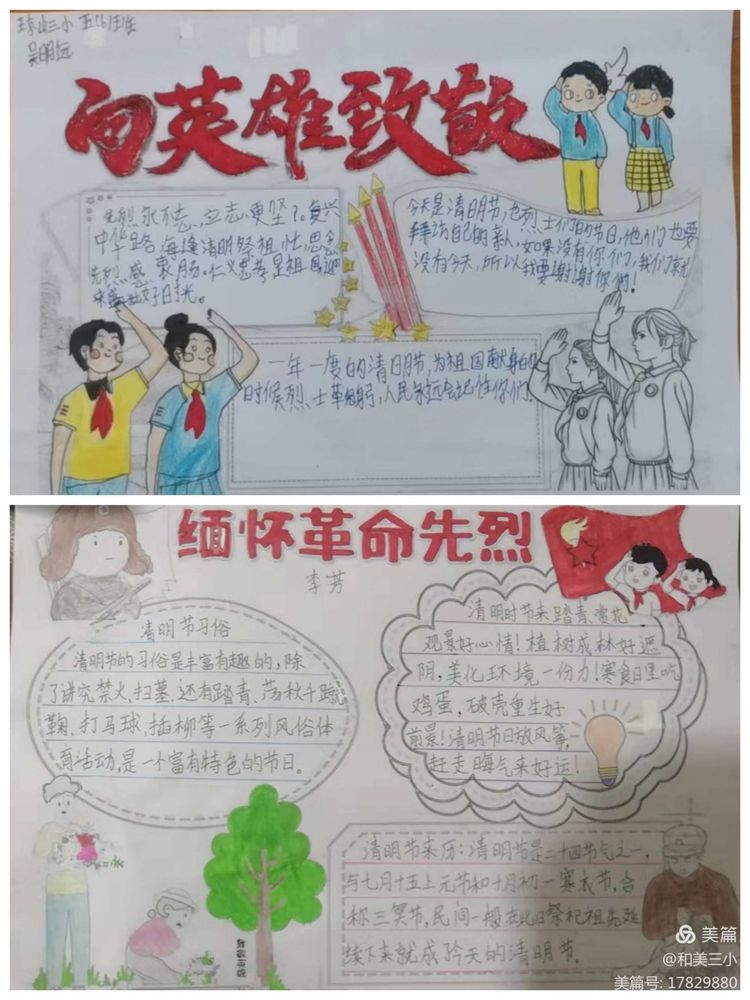 琼山三小 五(6)班
吴明远
向英雄致敬
先烈永不忘,立志更坚了。复兴
中华路 每逢清明祭祖忙,思念
先烈感衷肠。仁义忠孝是祖国,迎
来 好日光。
今天是清明节,也烈士们的节日,他们也要
拜访自己的亲人,如果没有你们,我们就
没有今天,所以我要谢谢你們!
一年一度的清明节,为祖国献身的
时候烈士 躬,人民永远会记住你们
缅怀革命先烈
李芳
清明节习俗
清明节的习俗是丰富有趣的,除
了讲究禁火、扫墓,还有踏青、荡秋千蹴
鞠、打马球、插柳等一系列风俗体
育活动,是一个富有特色的节日。
清明时节来踏青,赏花
观景好心情!植树成林好遮
阴,美化环境一份力!寒食日里吃
鸡蛋,破壳重生好
前景!清明节日放风筝,
赶走晦气来好运!
清明节来历:清明节是二十四节气之一,
与七月十五上元节和十月初一寒衣节,合
称三冥节,民间一般在此日祭祀祖先延
续下来就成了今天的清明节.
致敬英雄
美篇
@和美三小
美篇号: 17829880